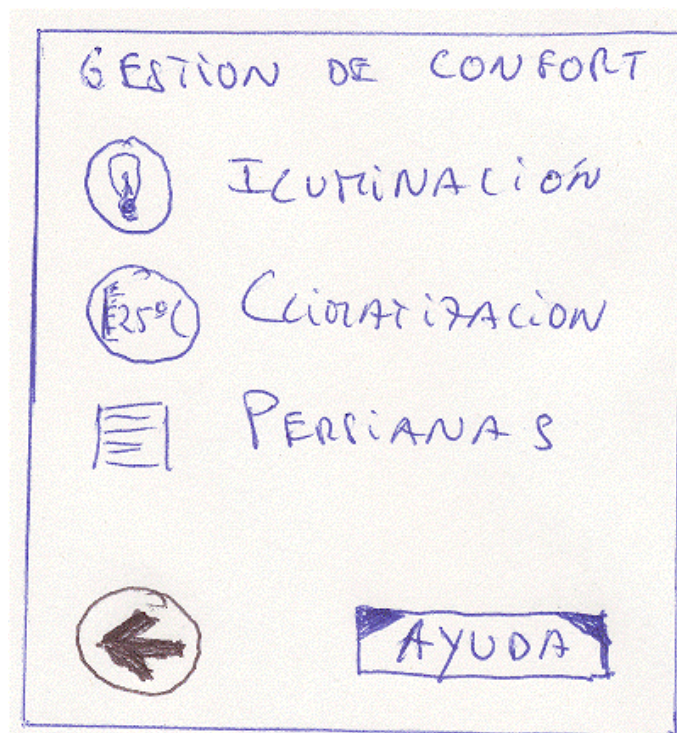 GESTION DE CONFORT
ILUMINACIÓN
25ºC CLIMATIZACION
PERSIANAS
AYUDA